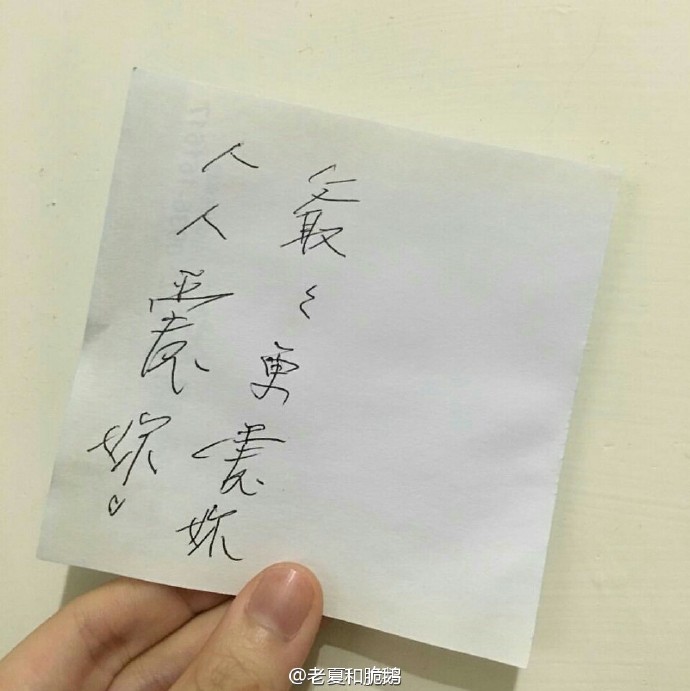 人人愛妳♡
爺々更愛妳
@老夏和脆鹅